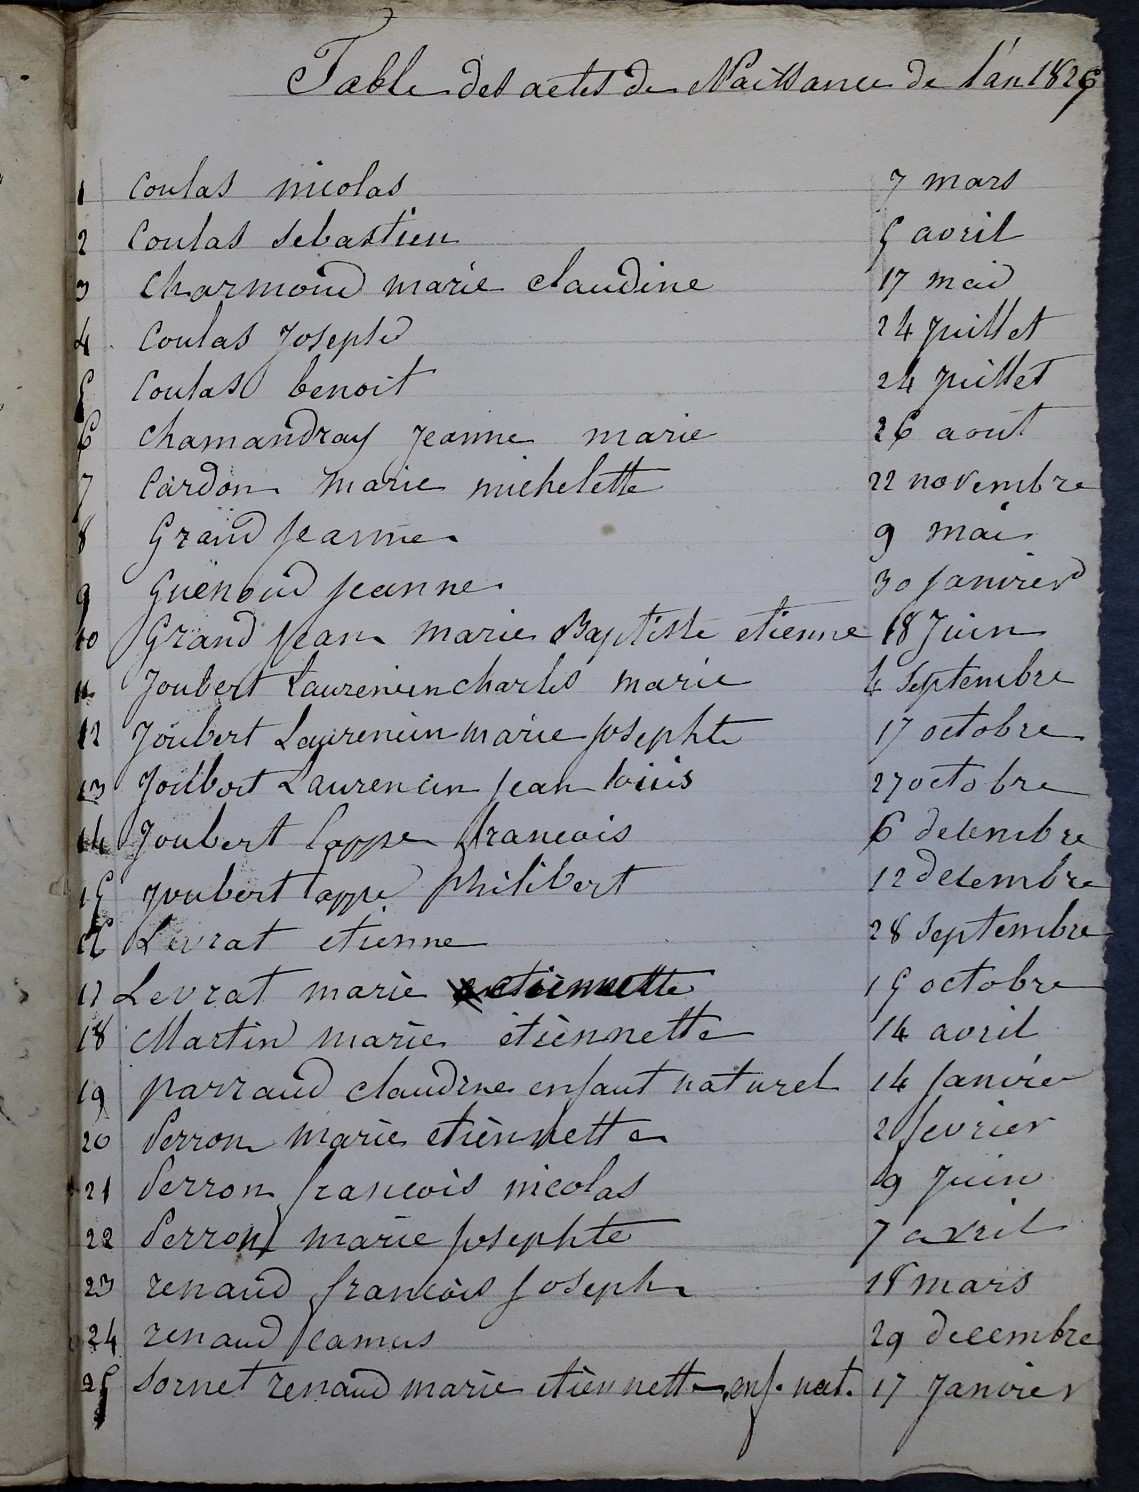 Table des actes de Naissance de l'an 1826
1 Coulas nicolas 7 mars
2 Coulas sebastien 5 avril
3 Charmond marie claudine 17 mai
4 Coulas Joseph 24 juillet
5 Coulas benoit 24 juillet
6 Chamandray jeanne marie 26 aout
7 Cardon marie michelette 22 novembre
8 Grand jeanne 9 mai
9 Guënoud jeanne 30 janvier
10 Grand jean marie Baptiste etienne 18 Juin
11 Joubert Laurencin charles marie 4 Septembre
12 Joubert Laurencin marie josephte 17 octobre
13 Joubert Laurencin jean louis 27 octobre
14 Joubert lappe francois 6 decembre
15 Joubert lappe philibert 12 decembre
16 Levrat etienne 28 Septembre
17 Levrat marie etiennette 15 octobre
18 Martin marie étiennette 14 avril
19 parraud claudine enfant naturel 14 Janvier
20 Perron marie etiennette 2 fevrier
21 Perron francois nicolas 9 Juin
22 Perron marie josephte 7 avril
23 renaud francois joseph 18 mars
24 renaud camus 29 decembre
25 Sornet renaud marie etiennette enf. nat. 17 Janvier